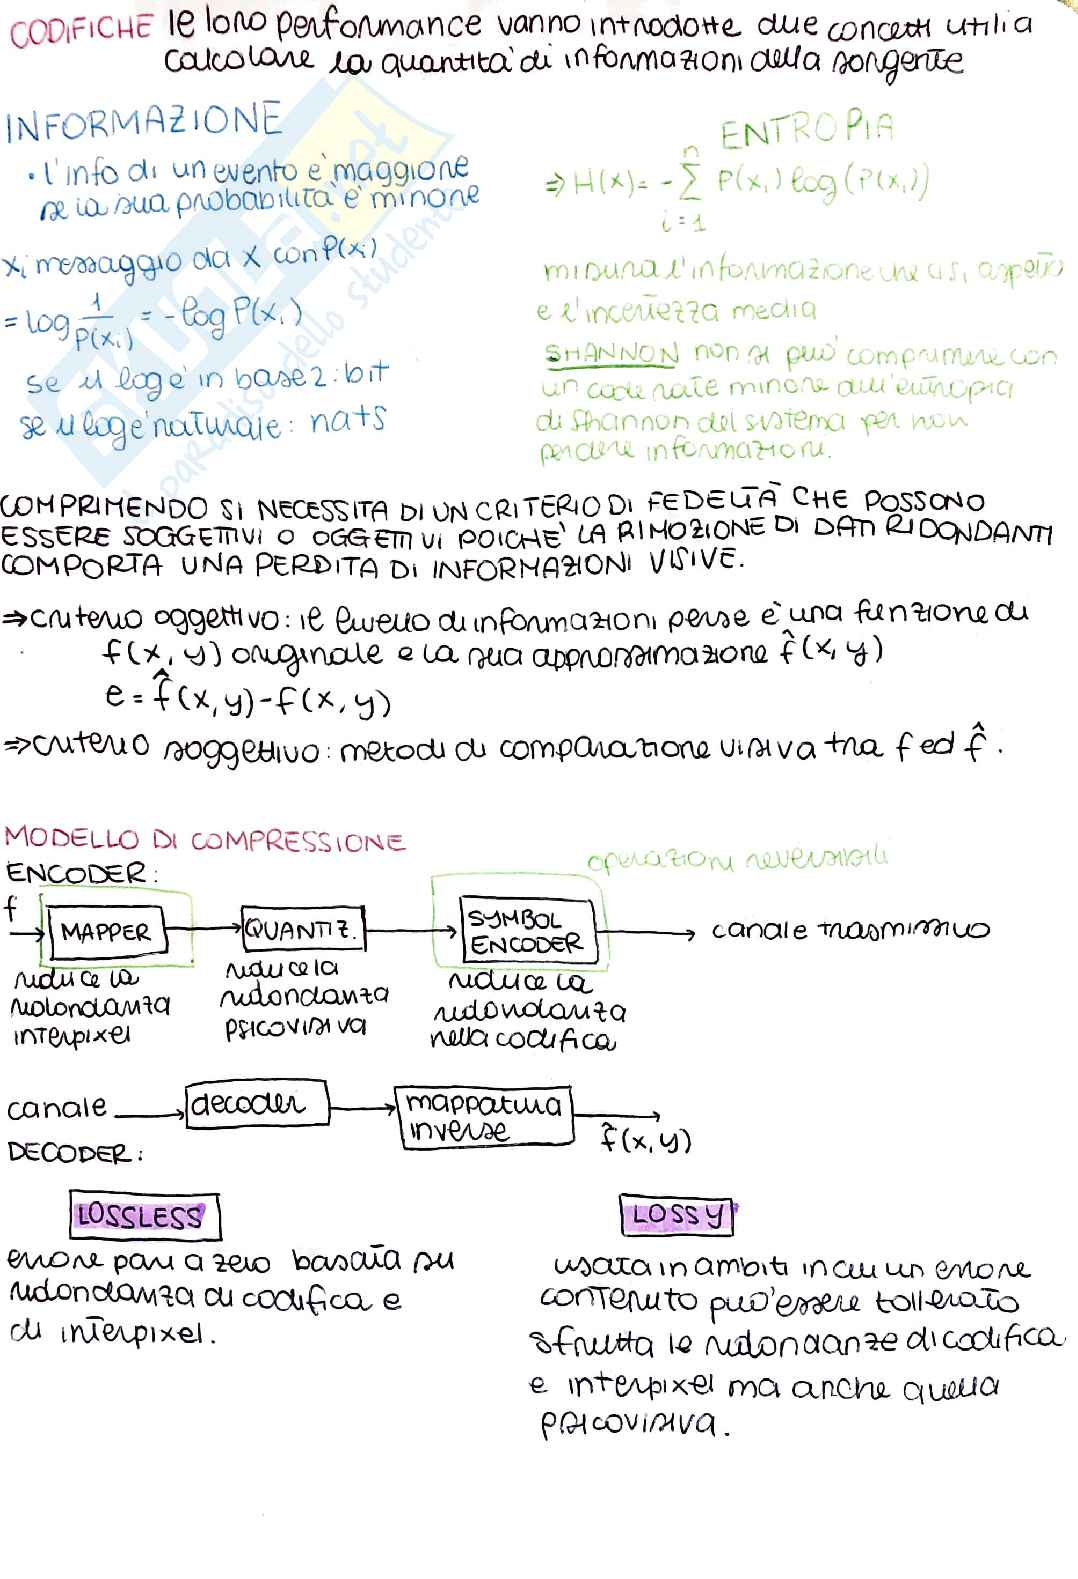 CODIFICHE le loro performance vanno introdotte due concetti utili a
calcolare la quantità di informazioni della sorgente
INFORMAZIONE
• l'info di un evento è maggiore
se la sua probabilità è minore
xi messaggio da X con P(xi)
= log 1/P(xi) = -log P(xi)
se il log è in base 2: bit
se il log è naturale: nats
ENTROPIA
⇒ H(x) = - Σ_{i=1}^{n} P(xi) log(P(xi))
misura l'informazione che ci si aspetta
e l'incertezza media
SHANNON non si può comprimere con
un code rate minore dell'entropia
di Shannon del sistema per non
perdere informazioni.
COMPRIMENDO SI NECESSITA DI UN CRITERIO DI FEDELTÀ CHE POSSONO
ESSERE SOGGETTIVI O OGGETTIVI POICHÈ LA RIMOZIONE DI DATI RIDONDANTI
COMPORTA UNA PERDITA DI INFORMAZIONI VISIVE.
⇒ criterio oggettivo: il livello di informazioni perse è una funzione di
f(x, y) originale e la sua approssimazione f̂(x, y)
e = f̂(x, y) - f(x, y)
⇒ criterio soggettivo: metodi di comparazione visiva tra f ed f̂.
MODELLO DI COMPRESSIONE
operazioni reversibili
ENCODER:
f MAPPER QUANTIZ. SYMBOL ENCODER canale trasmissivo
riduce la
ridondanza
interpixel
riduce la
ridondanza
psicovisiva
riduce la
ridondanza
nella codifica
canale decoder mappatura inverse f̂(x, y)
DECODER:
LOSSLESS
errore pari a zero basata su
ridondanza di codifica e
di interpixel.
LOSSY
usata in ambiti in cui un errore
contenuto può essere tollerato
sfrutta le ridondanze di codifica
e interpixel ma anche quella
psicovisiva.
SKUOLA.net
il paradiso dello studente